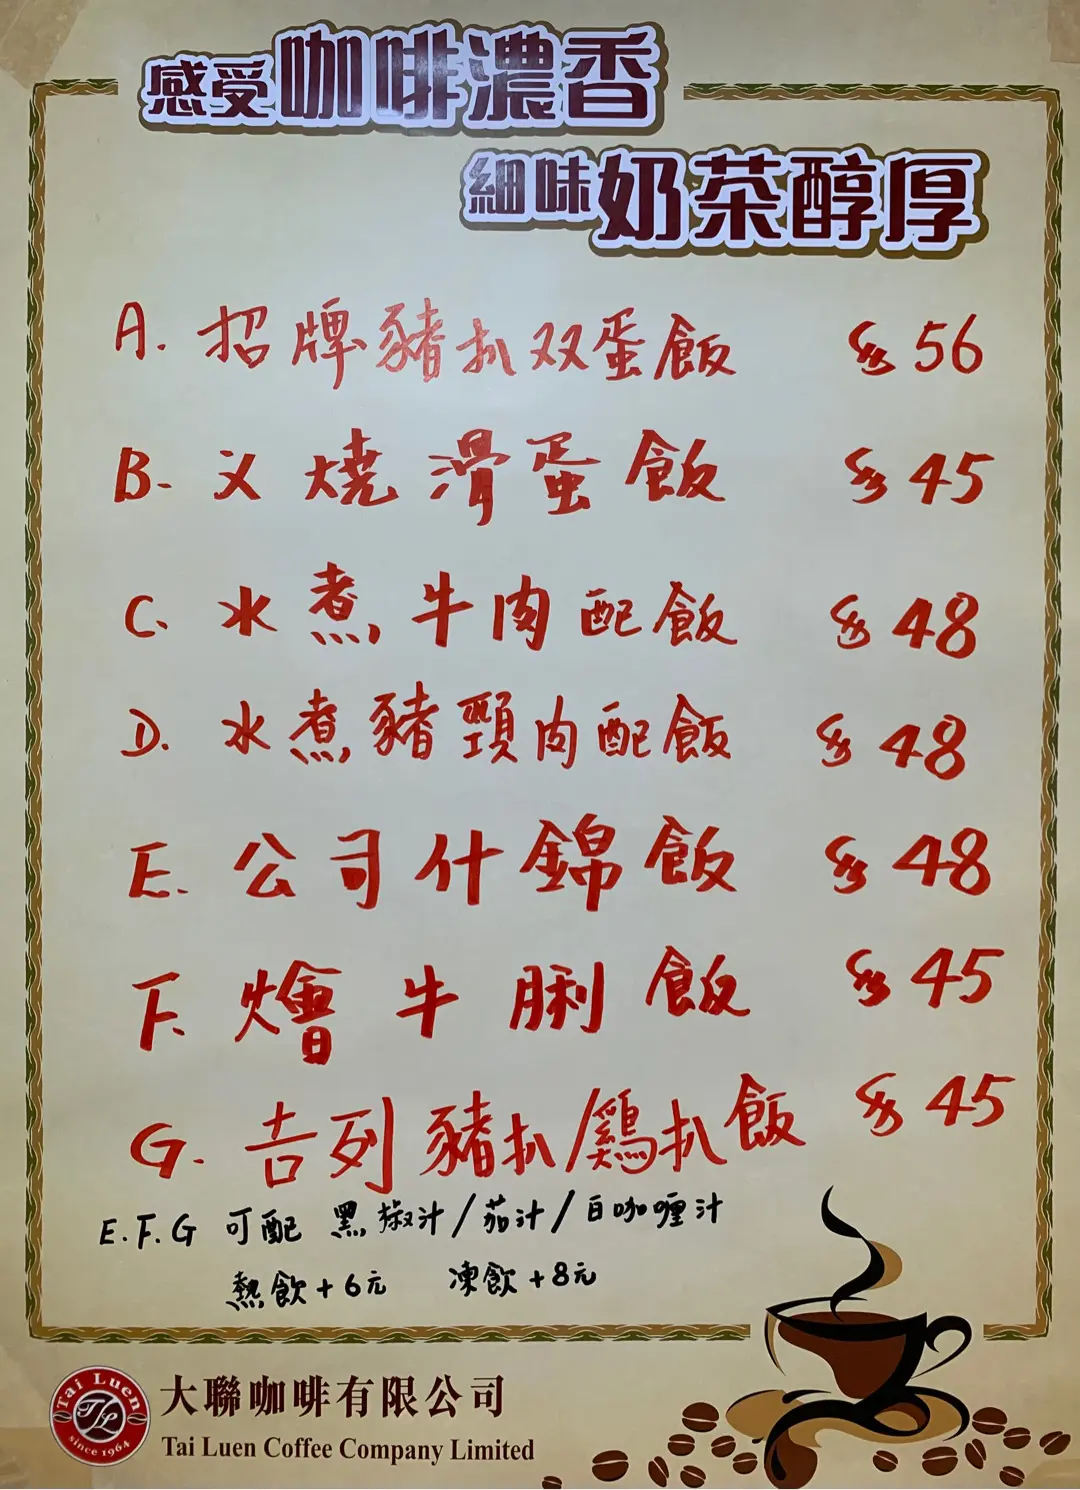 感受咖啡濃香
細味奶茶醇厚
A. 招牌豬扒双蛋飯 $56
B. 义燒滑蛋飯 $45
C. 水煮牛肉配飯 $48
D. 水煮豬頸肉配飯 $48
E. 公司什錦飯 $48
F. 燴牛脷飯 $45
G. 吉列豬扒/鷄扒飯 $45
E.F.G 可配 黑椒汁/茄汁/白咖喱汁
熱飲+6元 凍飲+8元
Tai Luen
TL
since 1964
大聯咖啡有限公司
Tai Luen Coffee Company Limited